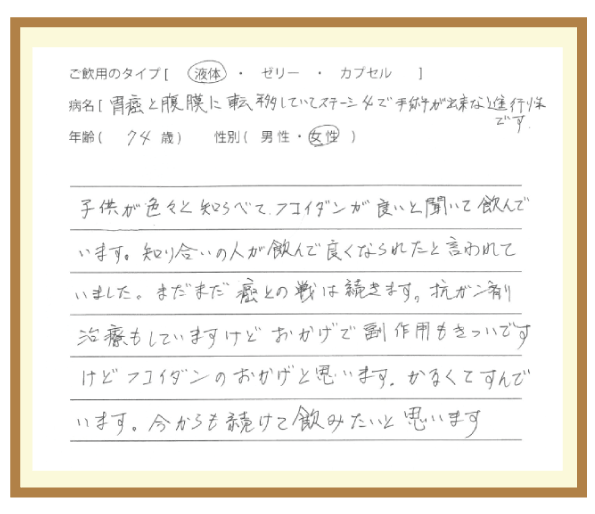 ご飲用のタイプ[ 液体 ・ ゼリー ・ カプセル ]
病名[ 胃癌と腹膜に転移していてステージ4で手術が出来ない進行性です
年齢( 74 歳) 性別( 男性・女性 )
子供が色々と知らべて、フコイダンが良いと聞いて飲んで
います。知り合いの人が飲んで良くなられたと言われて
いました。まだまだ癌との戦は続きます。抗がん剤
治療もしていますけどおかげで副作用もきついです
けどフコイダンのおかげと思います。かるくてすんで
います。今からも続けて飲みたいと思います